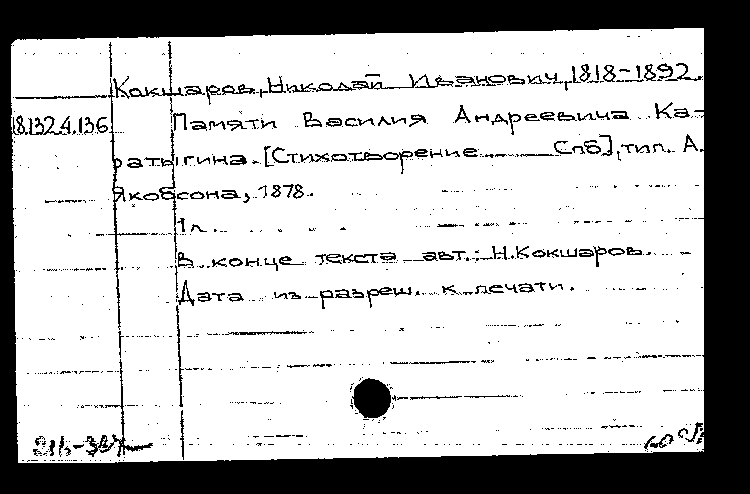 Кокшаров, Николай Иванович, 1818-1892.
18.132.4.136 Памяти Василия Андреевича Ка-
ратыгина. [Стихотворение Спб], тип. А.
Якобсона, 1878.
1л.
В конце текста авт.: Н.Кокшаров.
Дата из разреш. к печати.